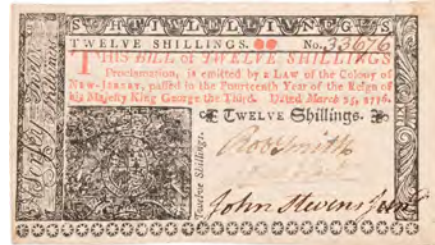 SHTIWLELLIVNEGS
TWELVE SHILLINGS. No. 33676
THIS BILL of TWELVE SHILLINGS
Proclamation, is emitted by a LAW of the Colony of
NEW-JERSEY, passed in the Fourteenth Year of the Reign of
his Majesty King George the Third. Dated March 25, 1776.
Twelve Shillings.
Twelve Shillings.
Robt Smith
John Stevens Junr